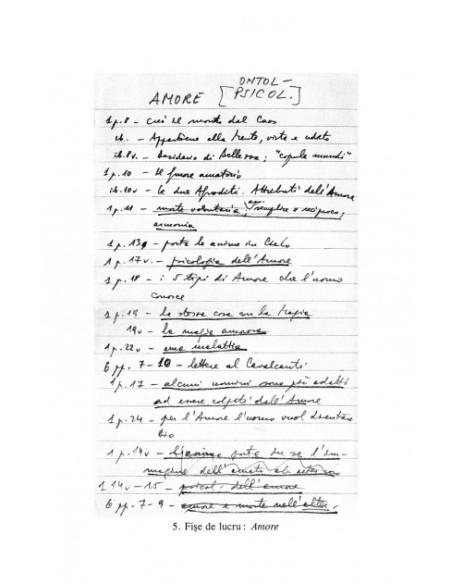 ONTOL-
AMORE [PSICOL.]
1 p.8 - creò il mondo dal Caos
ib. - Appartiene alla mente, vista e udito
ib. 8v. - desiderio di Bellezza; "copula mundi"
1 p.10 - Il furore amatorio
ib. 10v - le due Afroditi. Attributi dell'Amore
1 p.11 - morte volontaria, semplice o reciproca,
armonia
1 p.13 - porta le anime in Cielo
1 p.17v. - psicologia dell'Amore
1 p.18 - i 5 tipi di Amore che l'uomo
conosce
1 p.19 - la stessa cosa con la magia
19v - la magia amorosa
1 p.22v - una malattia
6 pp. 7-10 - lettere al Cavalcanti
1 p.17 - alcuni uomini sono più adatti
ad essere colpiti dall'Amore
1 p.24 - per l'Amore l'uomo vuol diventare
Dio
1 p.14v - l'animo porta in se l'im-
magine dell'amato
1 14v-15 - psicol. dell'amore
6 pp. 7-9 - amore e morte nell'
5. Fișe de lucru : Amore